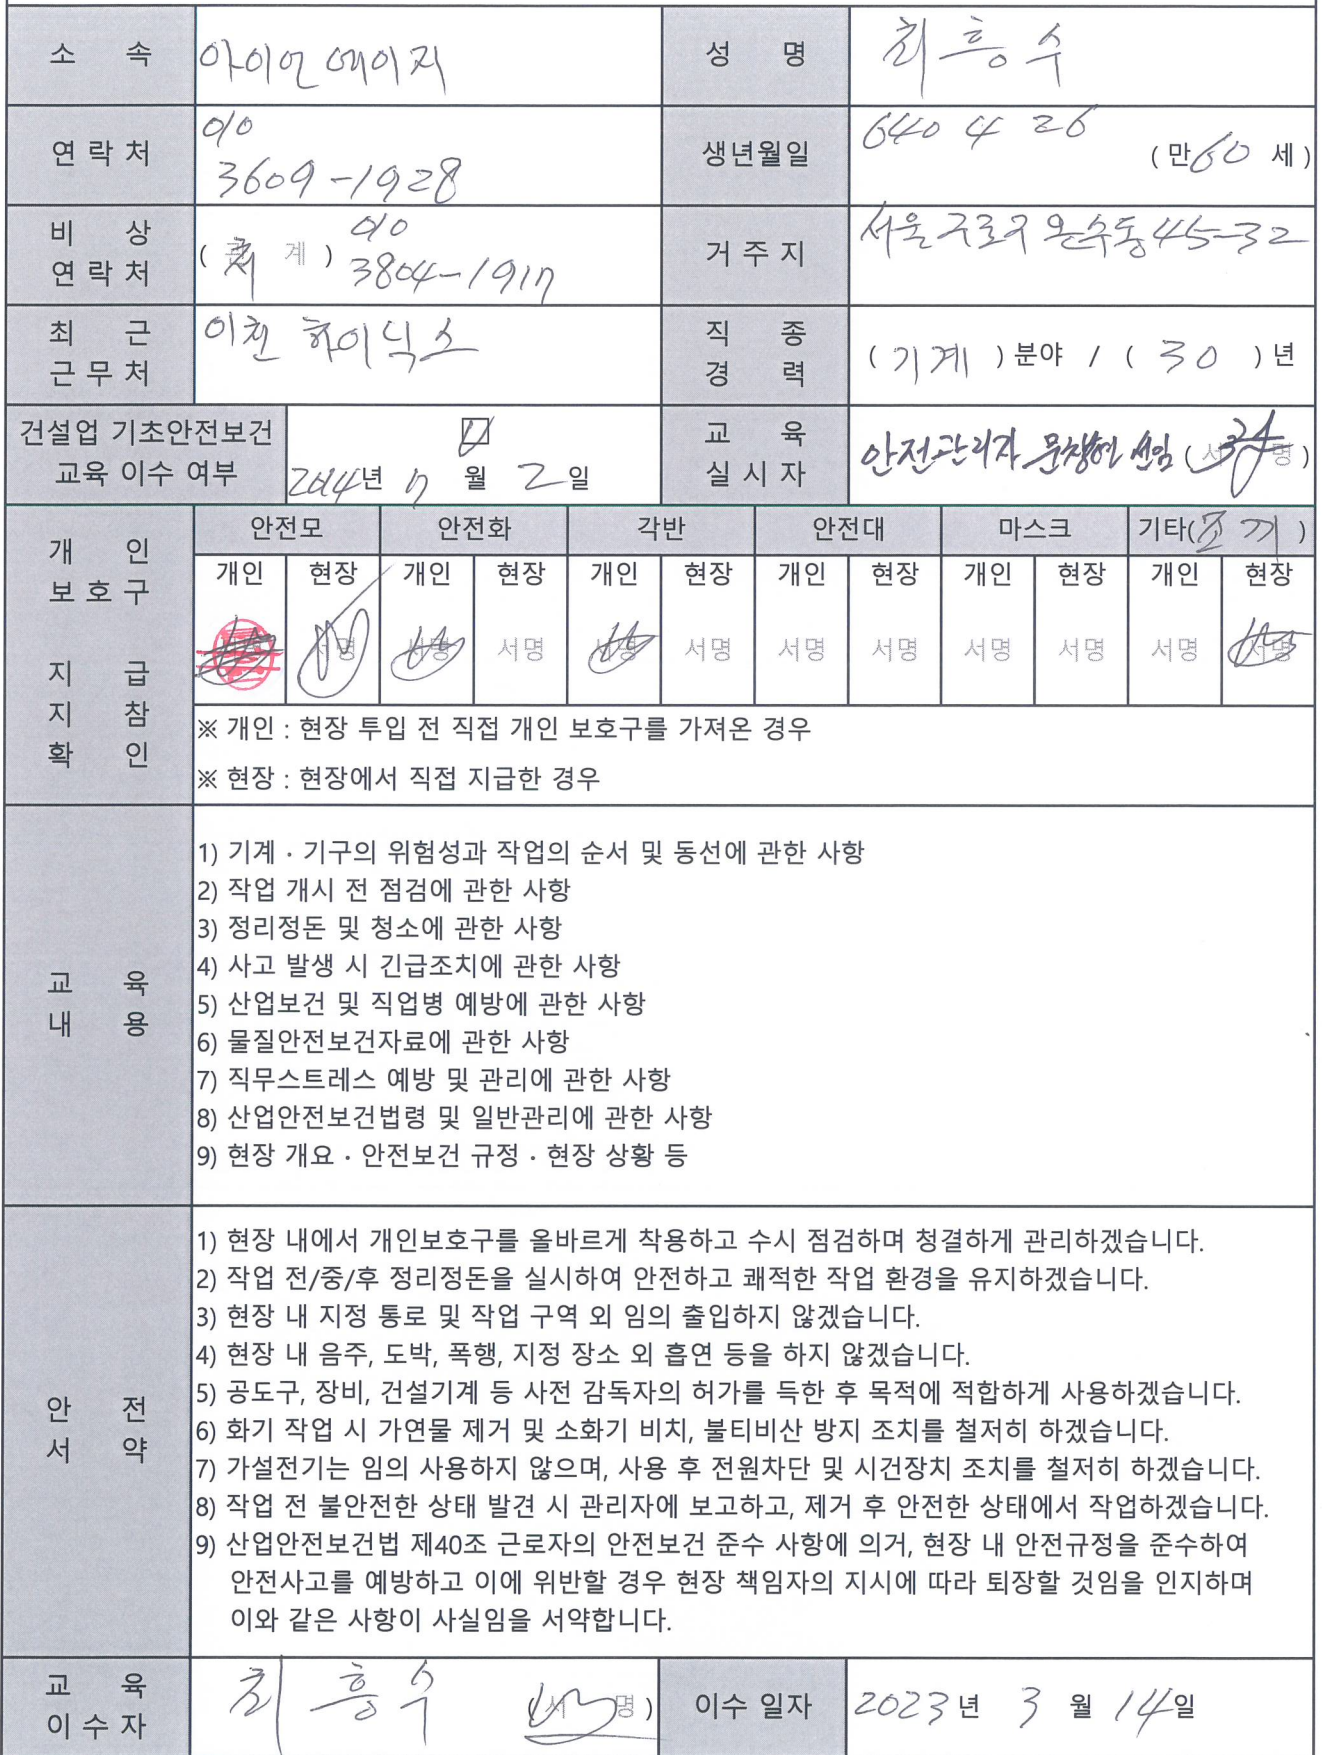 소 속 아이언에이지 성 명 최흥수
연 락 처 010 3609-1928 생년월일 640426 (만 60 세)
비 상 연 락 처 ( 처 계 ) 010 3804-1917 거 주 지 서울 구로구 온수동 45-32
최 근 근 무 처 이천 하이닉스 직 종 경 력 ( 기계 ) 분야 / ( 30 ) 년
건설업 기초안전보건 교육 이수 여부 2014년 7 월 2 일 교 육 실 시 자 안전관리자 문창현 선임 (서명)
개 인 보 호 구 지 급 지 참 확 인
안전모 안전화 각반 안전대 마스크 기타(조끼)
개인 현장 개인 현장 개인 현장 개인 현장 개인 현장 개인 현장
서명 서명 서명 서명 서명 서명 서명 서명 서명 서명 서명
※ 개인 : 현장 투입 전 직접 개인 보호구를 가져온 경우
※ 현장 : 현장에서 직접 지급한 경우
교 육 내 용
1) 기계 · 기구의 위험성과 작업의 순서 및 동선에 관한 사항
2) 작업 개시 전 점검에 관한 사항
3) 정리정돈 및 청소에 관한 사항
4) 사고 발생 시 긴급조치에 관한 사항
5) 산업보건 및 직업병 예방에 관한 사항
6) 물질안전보건자료에 관한 사항
7) 직무스트레스 예방 및 관리에 관한 사항
8) 산업안전보건법령 및 일반관리에 관한 사항
9) 현장 개요 · 안전보건 규정 · 현장 상황 등
안 전 서 약
1) 현장 내에서 개인보호구를 올바르게 착용하고 수시 점검하며 청결하게 관리하겠습니다.
2) 작업 전/중/후 정리정돈을 실시하여 안전하고 쾌적한 작업 환경을 유지하겠습니다.
3) 현장 내 지정 통로 및 작업 구역 외 임의 출입하지 않겠습니다.
4) 현장 내 음주, 도박, 폭행, 지정 장소 외 흡연 등을 하지 않겠습니다.
5) 공도구, 장비, 건설기계 등 사전 감독자의 허가를 득한 후 목적에 적합하게 사용하겠습니다.
6) 화기 작업 시 가연물 제거 및 소화기 비치, 불티비산 방지 조치를 철저히 하겠습니다.
7) 가설전기는 임의 사용하지 않으며, 사용 후 전원차단 및 시건장치 조치를 철저히 하겠습니다.
8) 작업 전 불안전한 상태 발견 시 관리자에 보고하고, 제거 후 안전한 상태에서 작업하겠습니다.
9) 산업안전보건법 제40조 근로자의 안전보건 준수 사항에 의거, 현장 내 안전규정을 준수하여
안전사고를 예방하고 이에 위반할 경우 현장 책임자의 지시에 따라 퇴장할 것임을 인지하며
이와 같은 사항이 사실임을 서약합니다.
교 육 이 수 자 최흥수 (서명) 이수 일자 2023 년 3 월 14일